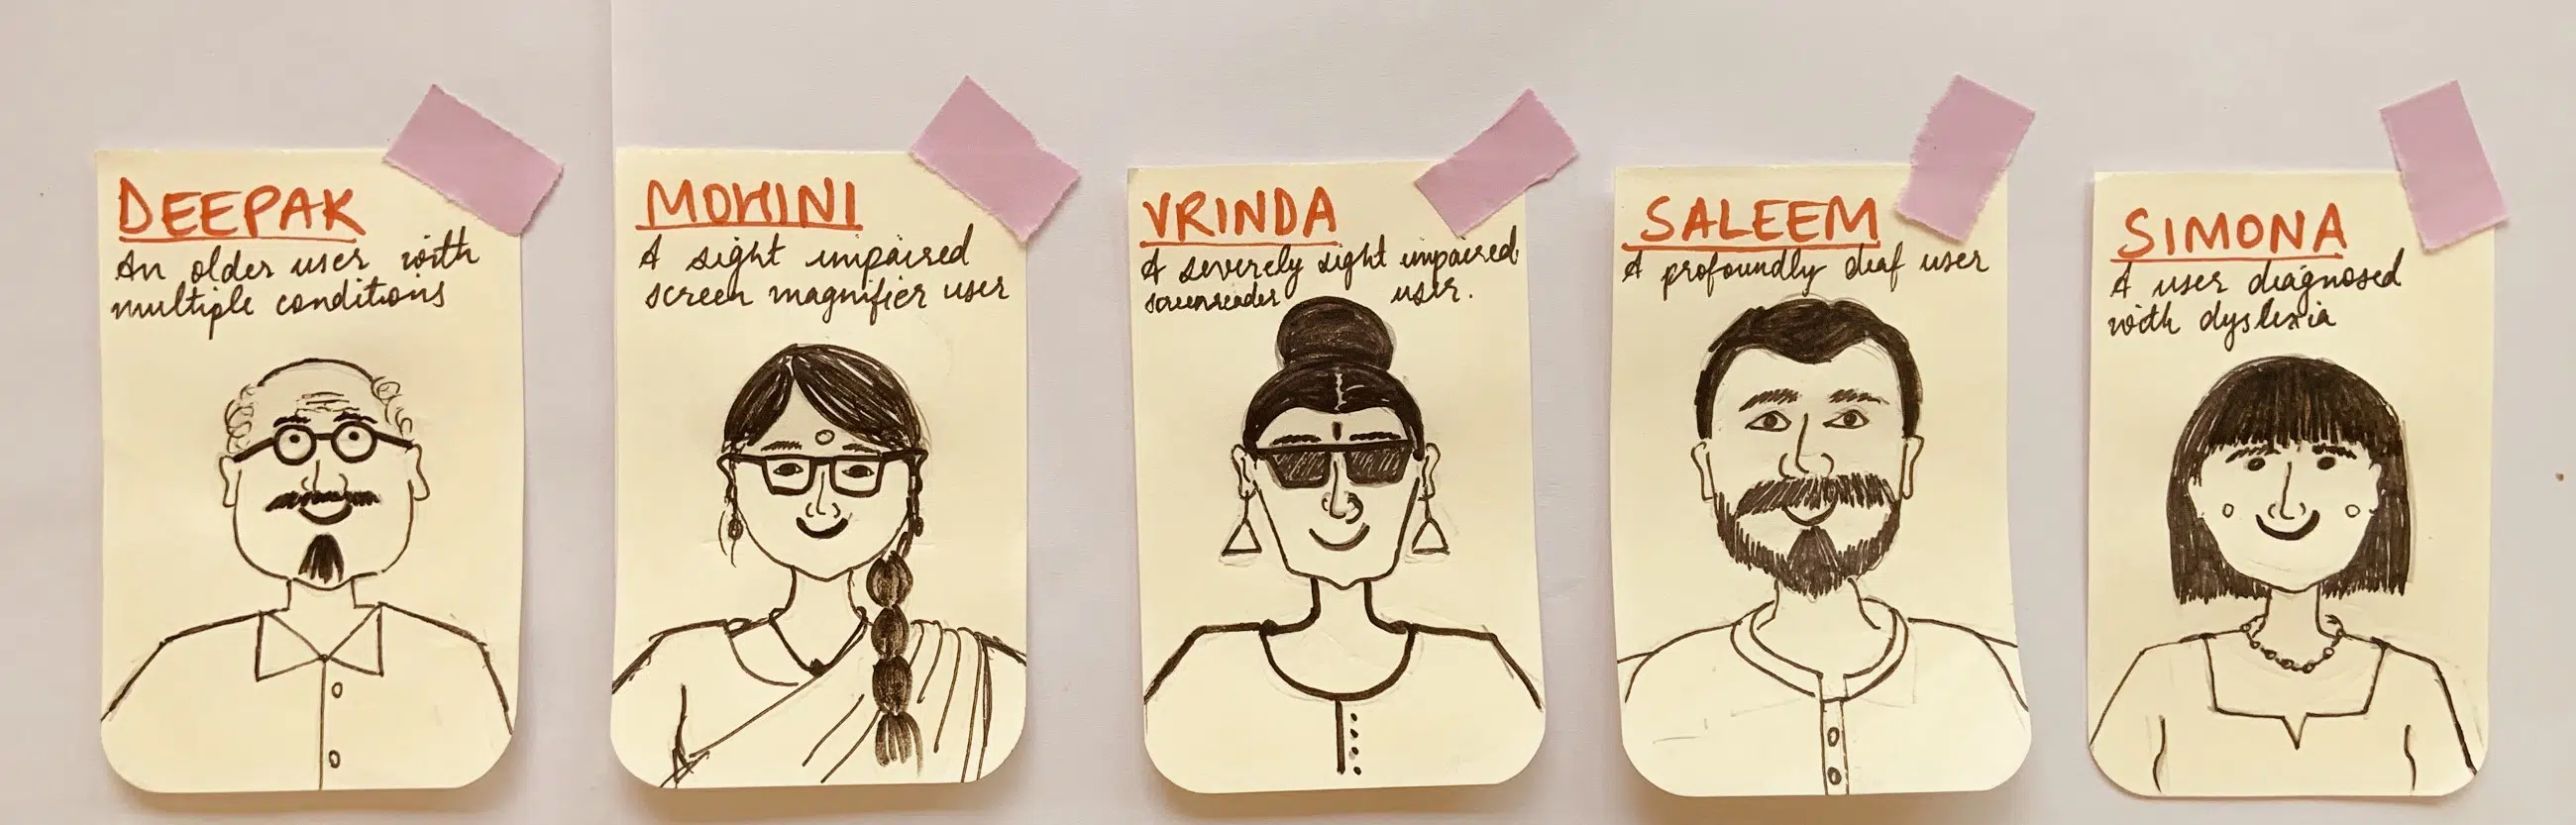 DEEPAK
An older user with
multiple conditions
MOHINI
A sight impaired
screen magnifier user
VRINDA
A severely sight impaired
screenreader user.
SALEEM
A profoundly deaf user
SIMONA
A user diagnosed
with dyslexia